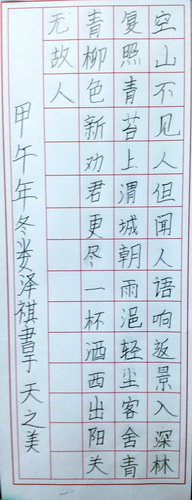 空山不见人但闻人语响返景入深林
复照青苔上渭城朝雨浥轻尘客舍青
青柳色新劝君更尽一杯酒西出阳关
无故人
甲午年冬泽祺書于 天之美